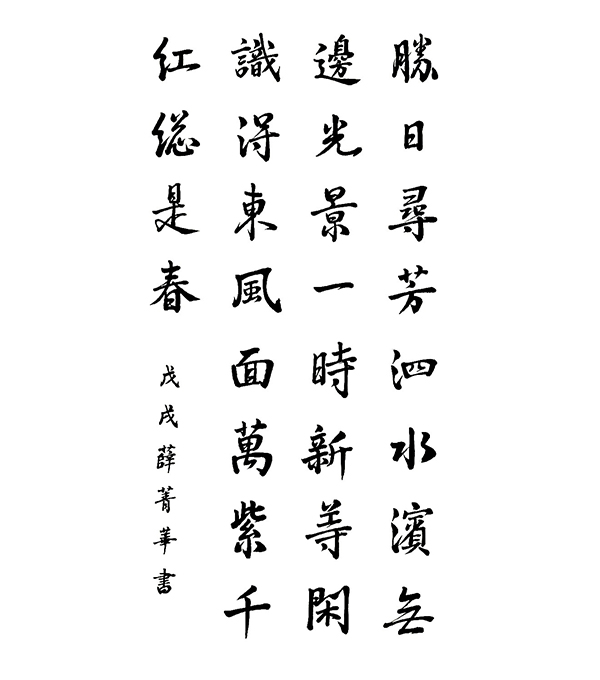 勝日尋芳泗水濱无
邊光景一時新等閑
識得東風面萬紫千
红総是春
戊戌薛菁華書